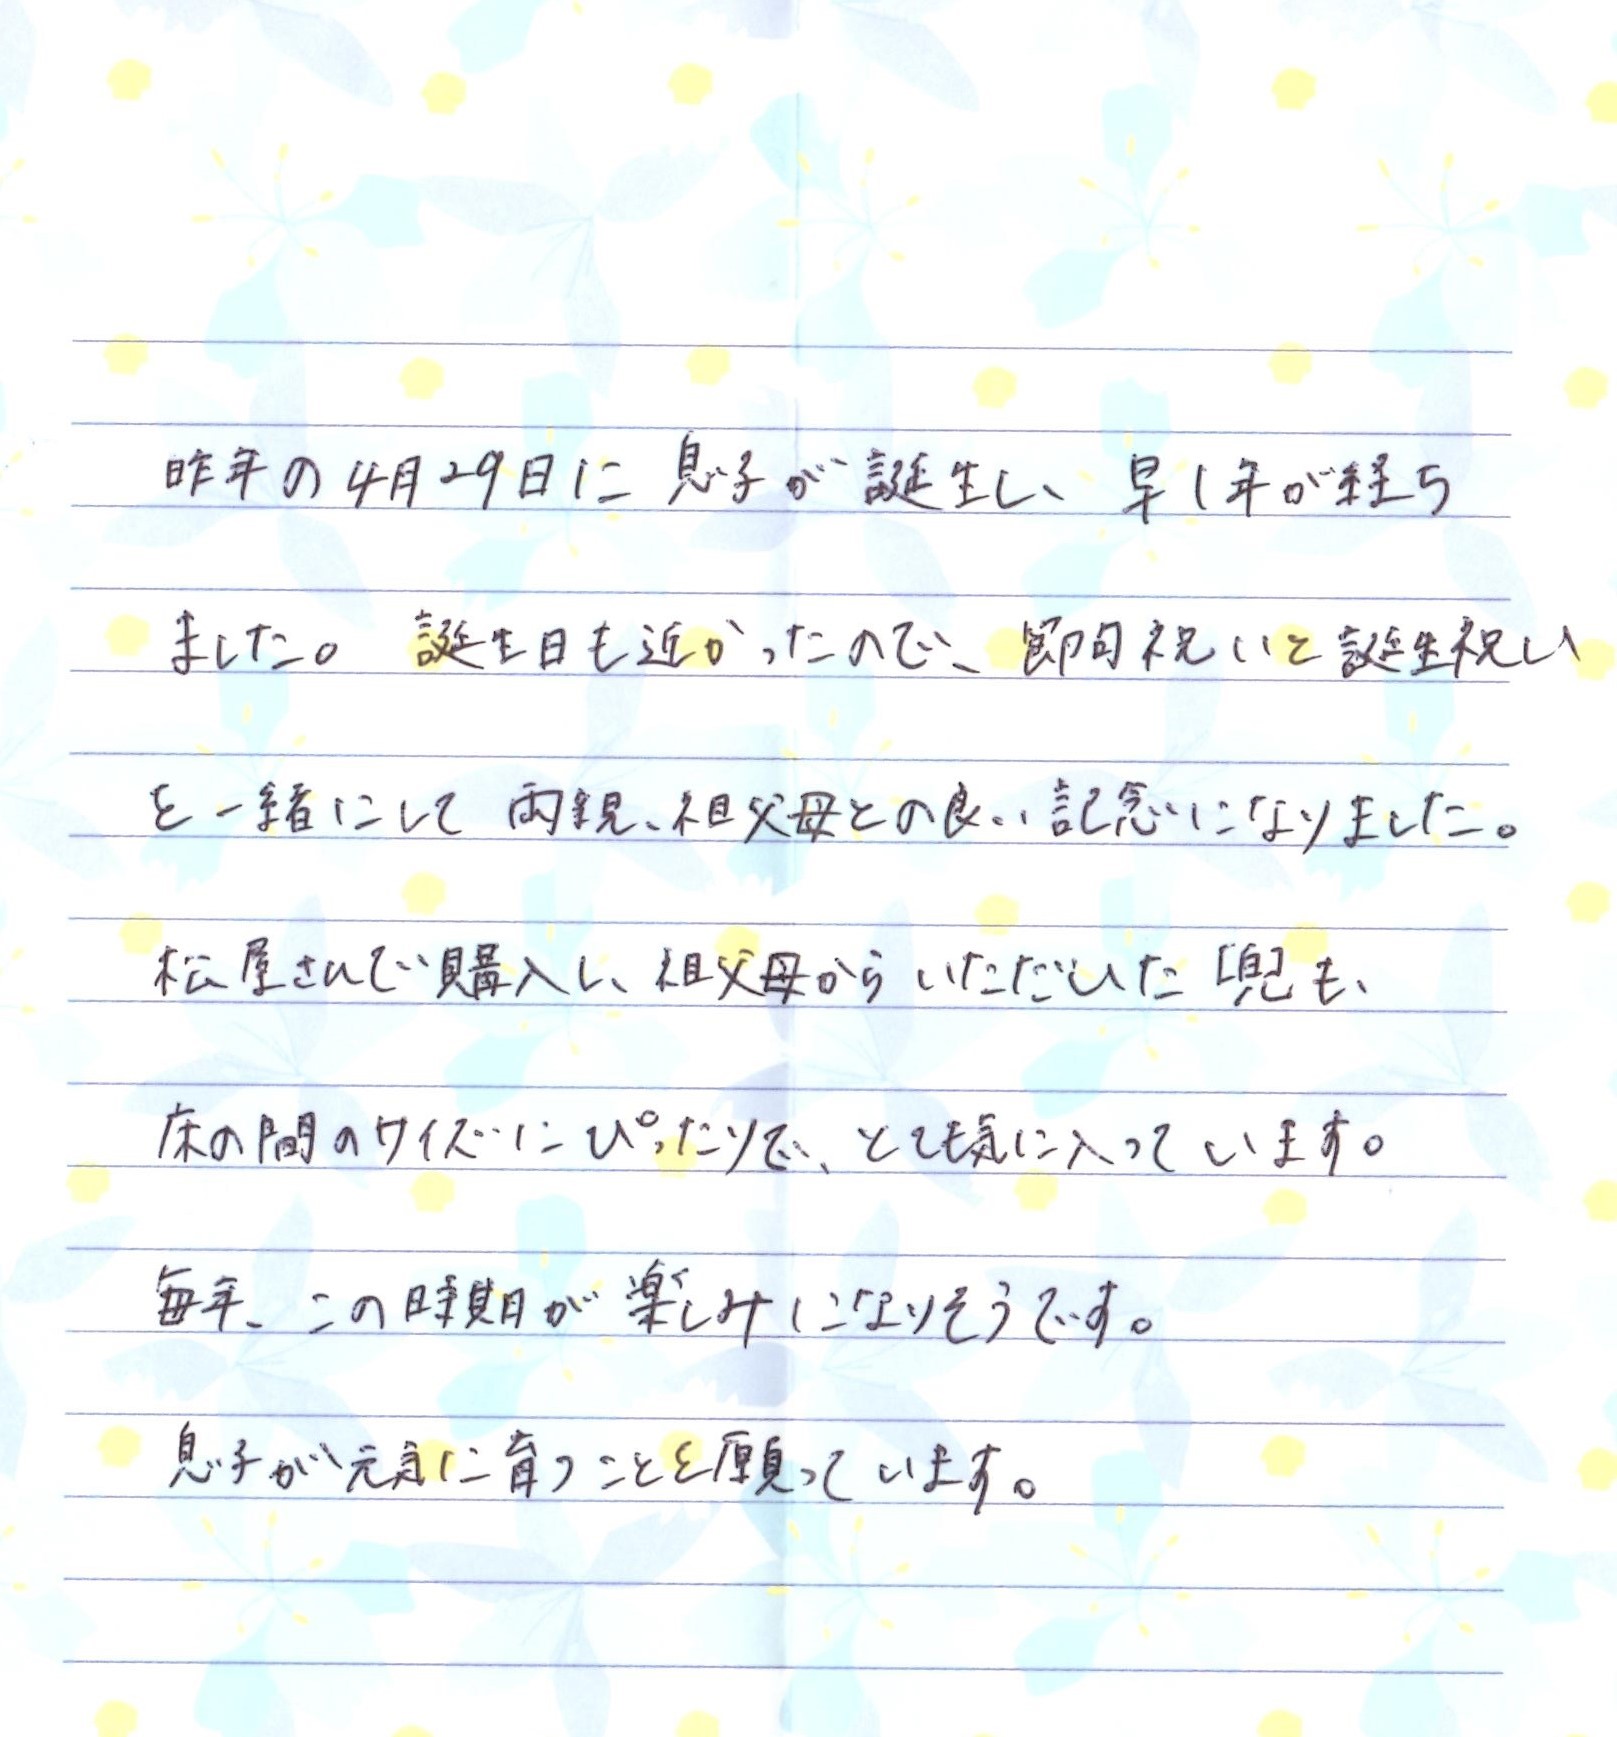 昨年の4月29日に息子が誕生し、早1年が経ち
ました。誕生日も近かったので、節句祝いと誕生祝い
を一緒にして両親、祖父母との良い記念になりました。
松屋さんで購入し、祖父母からいただいた兜も、
床の間のサイズにぴったりで、とても気に入っています。
毎年、この時期が楽しみになりそうです。
息子が元気に育つことを願っています。